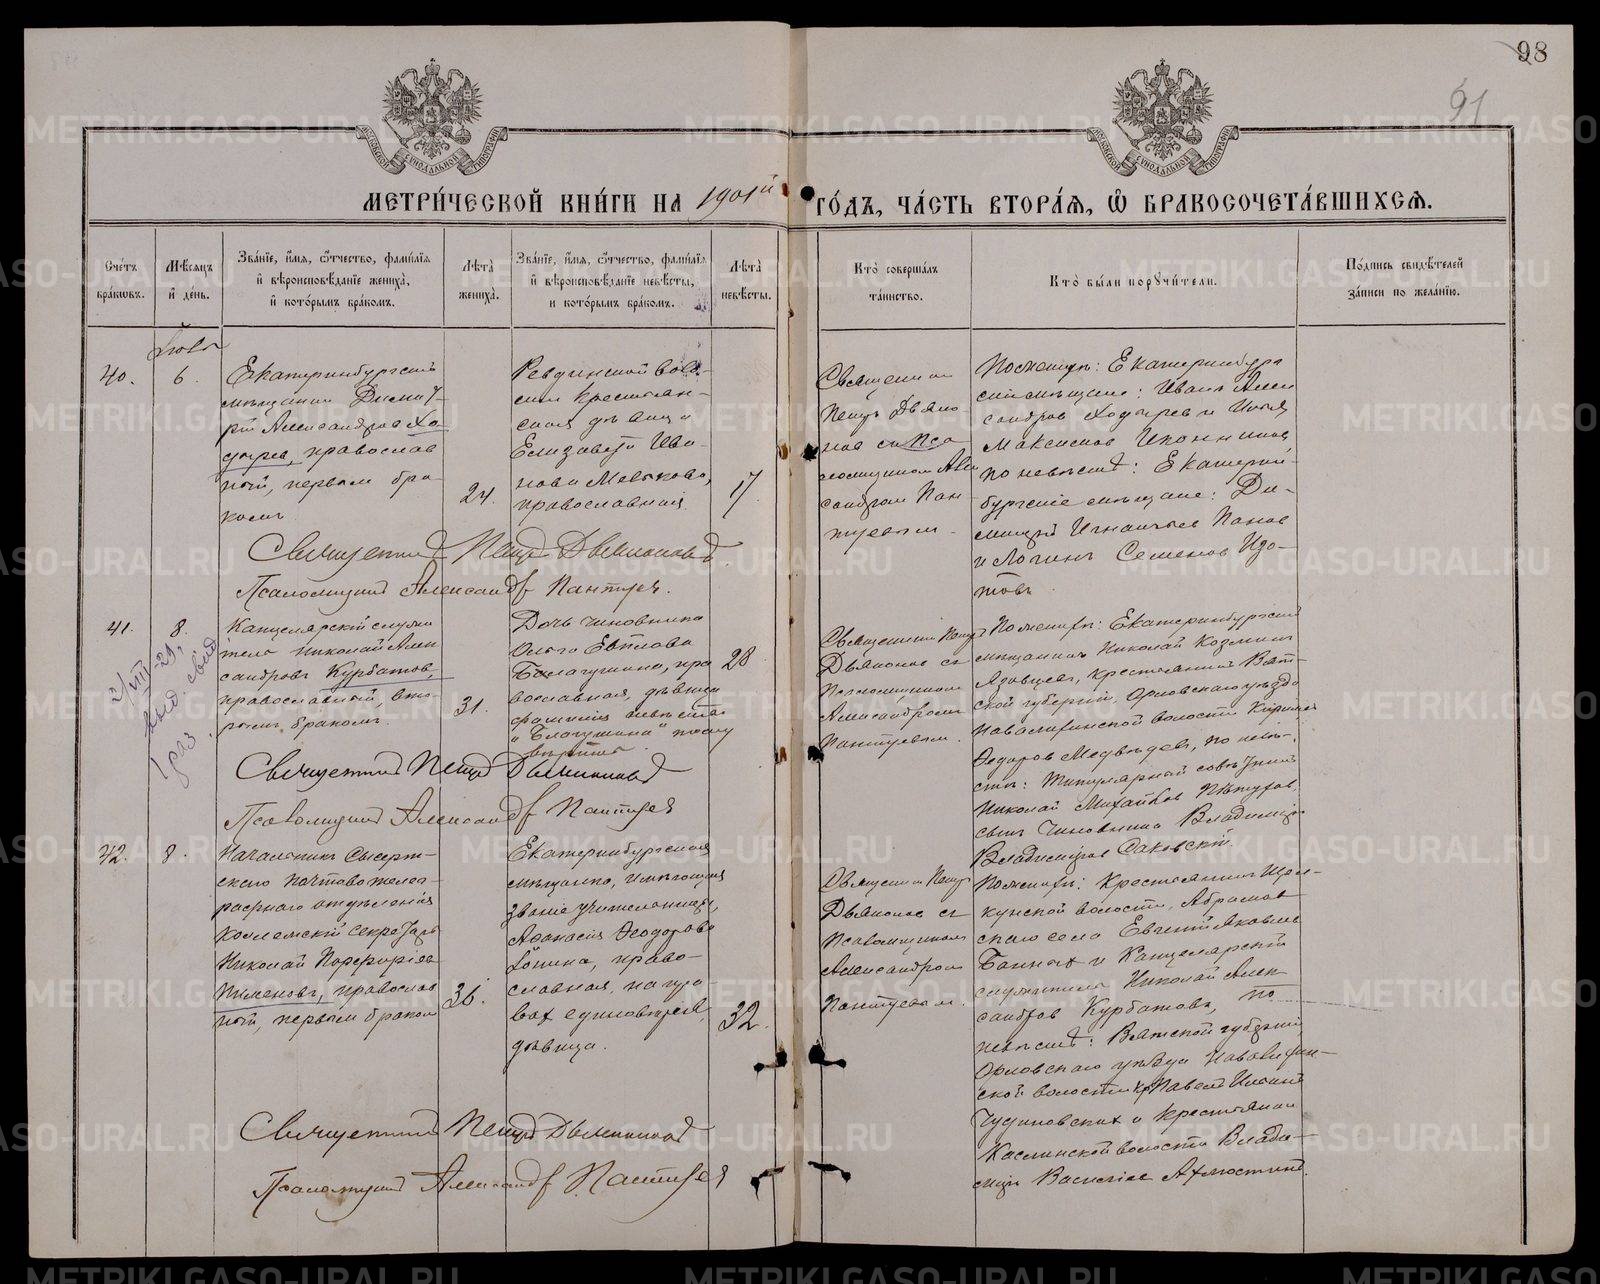 98
91
МЕТРИ́ЧЕСКОЙ КНИ́ГИ НА 1901й ГО́ДЪ, ЧА́СТЬ ВТОРА́Я, Ѽ БРАКОСОЧЕТА́ВШИХСЯ.
Сче́тъ бра́ковъ.
Мѣ́сяцъ и҆ де́нь.
Зва́нїе, и҆́мя, ѻ҆́тчество, фами́лїя и҆ вѣроисповѣ́данїе жениха̀, и҆ кото́рымъ бра́комъ.
Лѣ́та жениха̀.
Зва́нїе, и҆́мя, ѻ҆́тчество, фами́лїя и҆ вѣроисповѣ́данїе невѣ́сты, и҆ кото́рымъ бра́комъ.
Лѣ́та невѣ́сты.
Кто̀ соверша́лъ та́инство.
Кто̀ бы́ли порꙋчи́тели.
По́дпись свидѣ́телей за́писи по жела́нїю.
40.
6.
Екатеринбургскій
мѣщанинъ Димит-
рій Александровъ Хо
дыревъ, православ
ный, первымъ бра-
комъ
24.
Ревдинской воло-
сти крестьян-
ская дѣвица
Елизавета Ива-
нова
православная
17
Священник
Петръ Дьяко-
новъ съ Пса
ломщиком Алек
сандром Пан
туевым
По женихѣ: Екатеринбург
скіе мѣщане: Иванъ Алек
сандров Ходырев и Илья
Максимов Иконников
по невѣстѣ: Екатерин-
бургскіе мѣщане: Ди-
митрій Игнатьев Панов
и Логинъ Семенов Изо-
товъ
Священник Петр Дьяконов
Псаломщик Александр Пантуев.
41.
8.
Канцелярскій служи
тель Николай Алек
сандровъ Курбатов,
православный, вто-
рымъ бракомъ.
31.
Дочь чиновника
Ольга Евтлова
Благушина, пра
вославная, дѣвица
фамилія невѣсты
"Благушина"
28
Священник Петр
Дьяконов съ
Псаломщиком
Александромъ
Пантуевым.
По женихѣ: Екатеринбургскій
мѣщанинъ Николай Козмин
Язовцев, крестьянин Вят-
ской губерніи, Орловскаго уѣзда
волости
Феодоров Медвѣдев, по невѣ-
стѣ: Титулярный совѣтник
Николай Михайлов Пѣтухов,
сынъ чиновника Владимір
Владиміров Саковскій.
Священник Петр Дьяконов
Псаломщик Александр Пантуев
42.
8.
Начальникъ Сысерт-
скаго почтово-телег-
рафнаго отдѣленія
Коллежскій Секретарь
Николай Порфиріев
Пименовъ, православ
ный, первым браком
36.
Екатеринбургская
мѣщанка, имѣющая
званіе учительницы,
Афанасія Феодорова
право-
славная, на пра-
вах единовѣрія,
дѣвица.
32.
Священник Петр
Дьяконов съ
Псаломщиком
Александром
Пантуевым.
По женихѣ: Крестьянин Щел-
кунской волости, Абрамов
скаго села Евгеній Яковлев
и Канцелярскій
служитель Николай Алек
сандров Курбатовъ, по
невѣстѣ: Вятской губерніи
Орловскаго уѣзда
ской волости кр. Павел
Чудиновских и крестьянин
Каслинской волости Влади-
мір Васильев
Священник Петр Дьяконов
Псаломщик Александр Пантуев